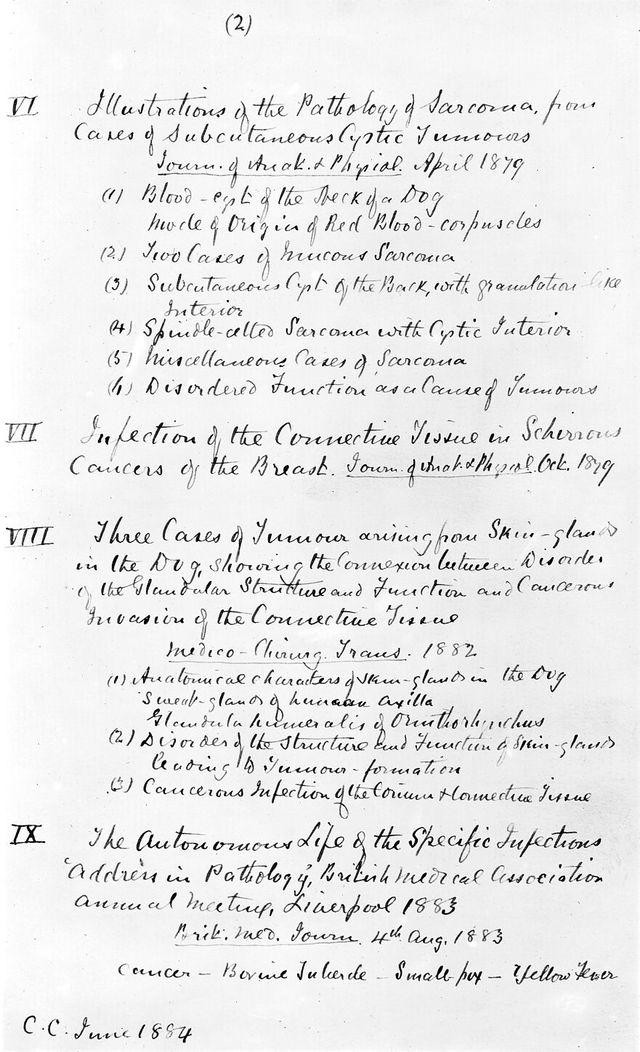 (2)
VI Illustrations of the Pathology of Sarcoma, from
Cases of Subcutaneous Cystic Tumours
Journ. of Anat. & Physiol. April 1879
(1) Blood-cyst of the Neck of a Dog
Mode of Origin of Red Blood-corpuscles
(2) Two Cases of Mucous Sarcoma
(3) Subcutaneous Cyst of the Back, with granulation-like
Interior
(4) Spindle-celled Sarcoma with Cystic Interior
(5) Miscellaneous Cases of Sarcoma
(6) Disordered Function as a Cause of Tumours
VII Infection of the Connective Tissue in Scirrous
Cancers of the Breast. Journ. of Anat. & Physiol. Oct. 1879
VIII Three Cases of Tumour arising from Skin-glands
in the Dog, showing the Connexion between Disorder
of the Glandular Structure and Function and Cancerous
Invasion of the Connective Tissue
Medico-Chirurg. Trans. 1882
(1) Anatomical characters of skin-glands in the Dog
Sweat-glands of human axilla
Glandula humeralis of Ornithorhynchus
(2) Disorder of the Structure and Function of Skin-glands
leading to Tumour-formation
(3) Cancerous Infection of the Corium & Connective Tissue
IX The Autonomous Life of the Specific Infections
Address in Pathology, British Medical Association
Annual Meeting, Liverpool 1883
Brit. Med. Journ. 4th Aug. 1883
Cancer – Bovine Tubercle – Small-pox – Yellow Fever
C.C. June 1884